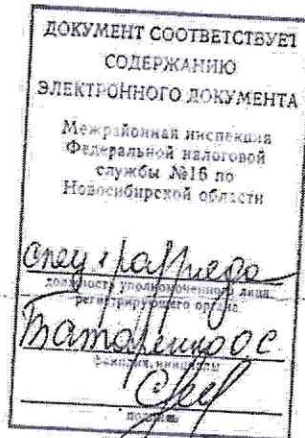 ДОКУМЕНТ СООТВЕТСТВУЕТ
СОДЕРЖАНИЮ
ЭЛЕКТРОННОГО ДОКУМЕНТА
Межрайонная инспекция
Федеральной налоговой
службы №16 по
Новосибирской области
спец 1 разряда
должность уполномоченного лица
регистрирующего органа
фамилия, инициалы
подпись